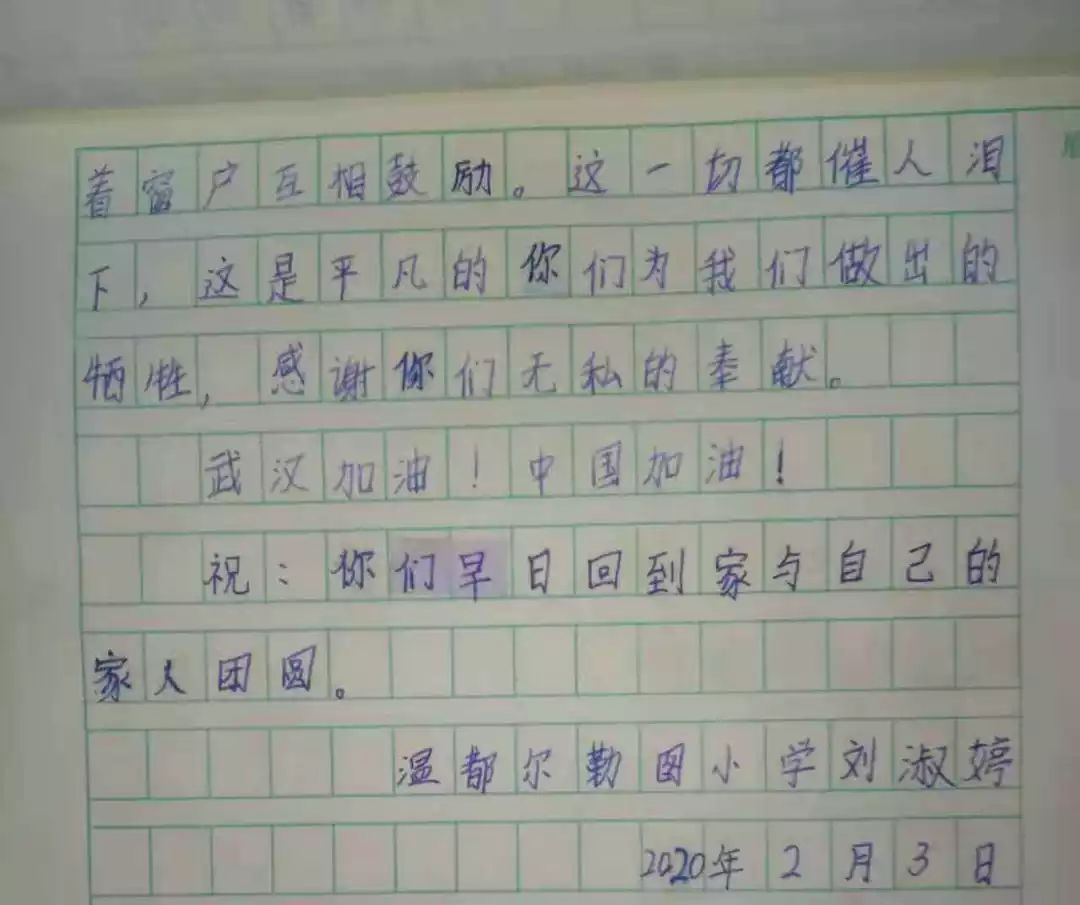 着窗户互相鼓励。这一切都催人泪
下,这是平凡的你们为我们做出的
牺牲,感谢你们无私的奉献。
武汉加油!中国加油!
祝:你们早日回到家与自己的
家人团圆。
温都尔勒图小学刘淑婷
2020年2月3日